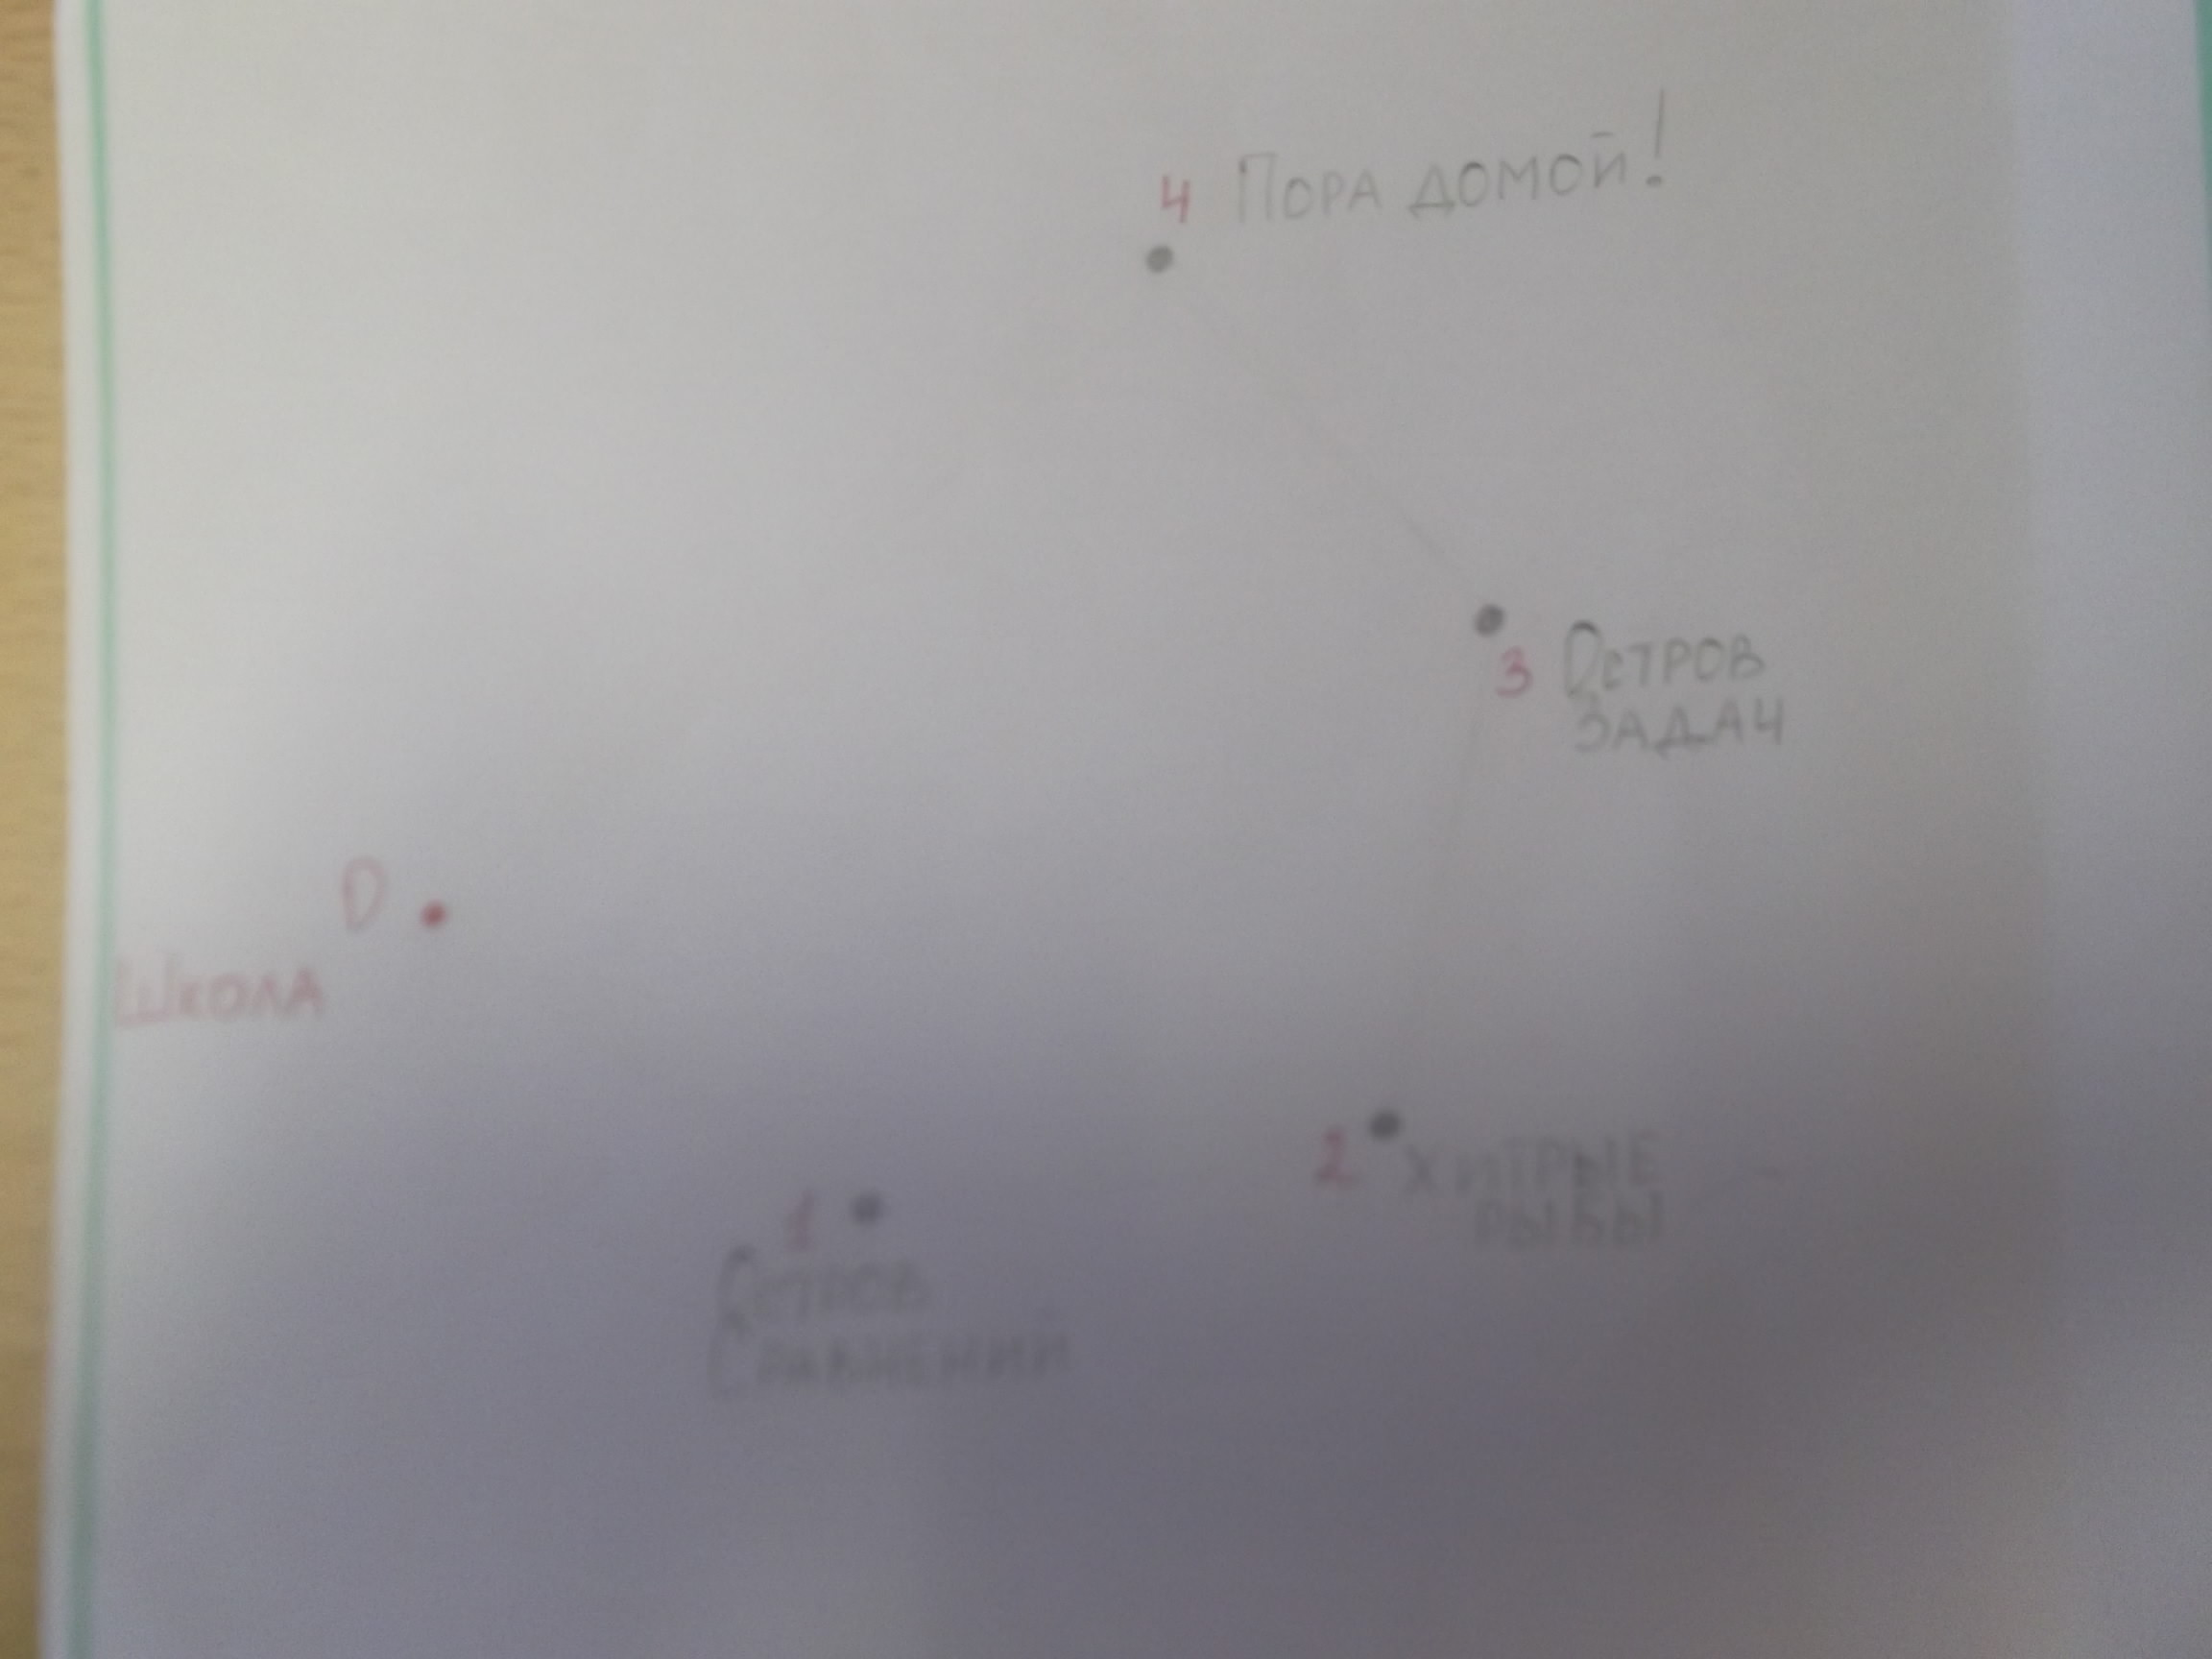 4 Пора домой!
3 Остров
задач
0
Школа
2 Хитрые
рыбы
1
Остров
Сравнений